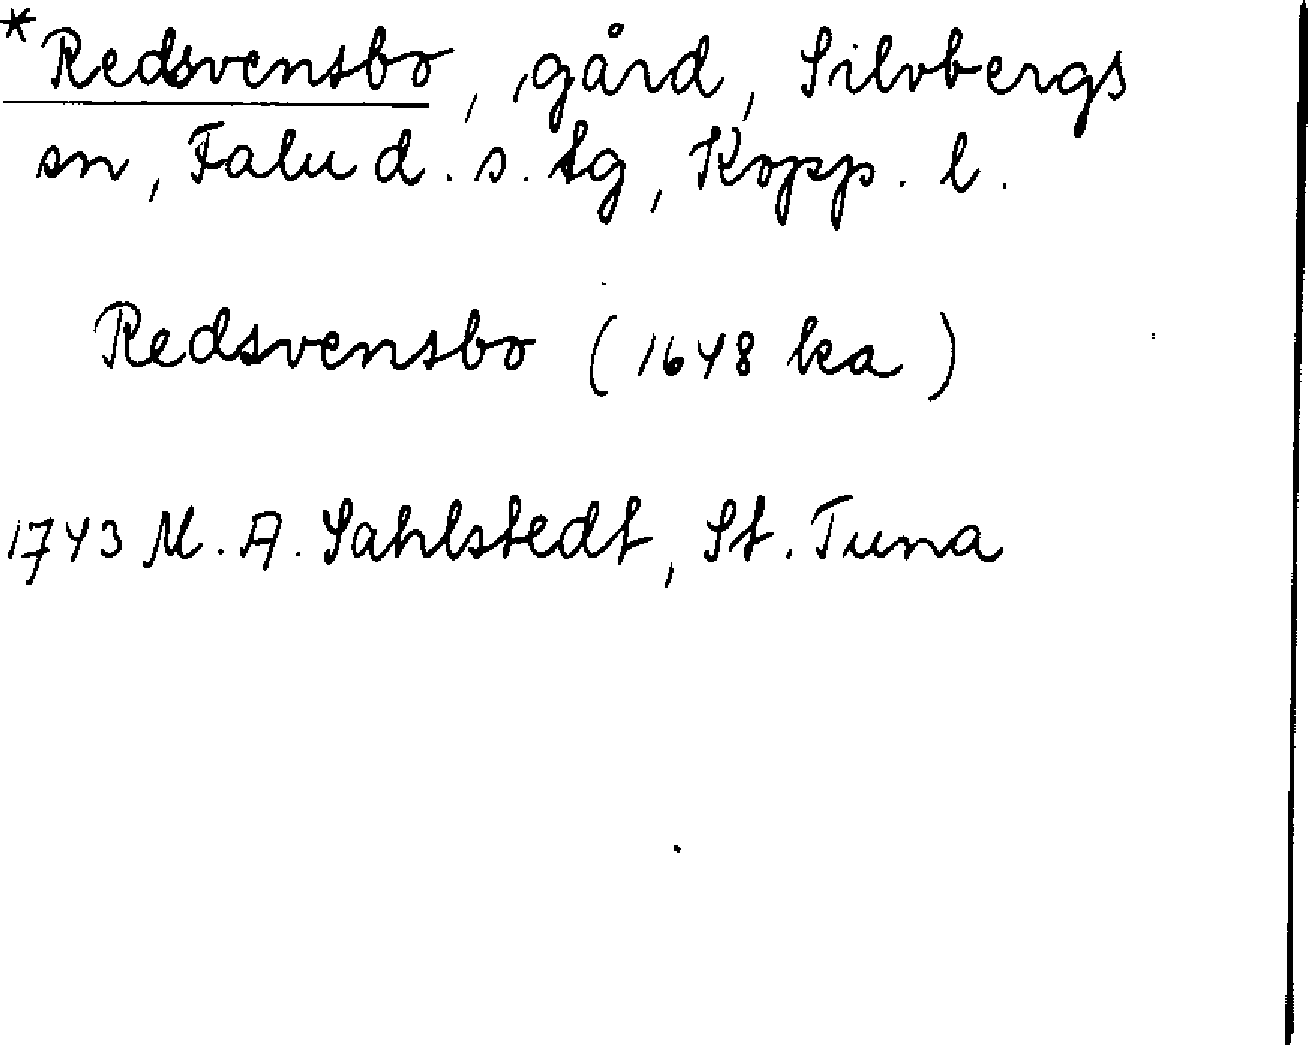 *Redsvensbo, gård, Silvbergs
sn, Falu d. s. tg, Kopp. l.
Redsvensbo (1648 ka)
1743 M. A. Sahlstedt, St. Tuna